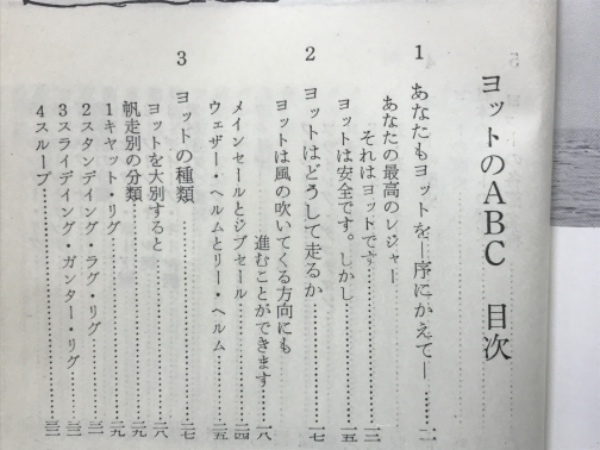 ヨットのABC 目次
1 あなたもヨットを―序にかえて―……一一
あなたの最高のレジャー
それはヨットです……一二
ヨットは安全です。しかし……一五
2 ヨットはどうして走るか……一七
ヨットは風の吹いてくる方向にも
進むことができます……一八
メインセールとジブセール……二四
ウェザー・ヘルムとリー・ヘルム……二五
3 ヨットの種類……二七
ヨットを大別すると……二八
帆走別の分類……二九
1キャット・リグ……二九
2スタンディング・ラグ・リグ……三一
3スライディング・ガンター・リグ……三二
4スループ……三三